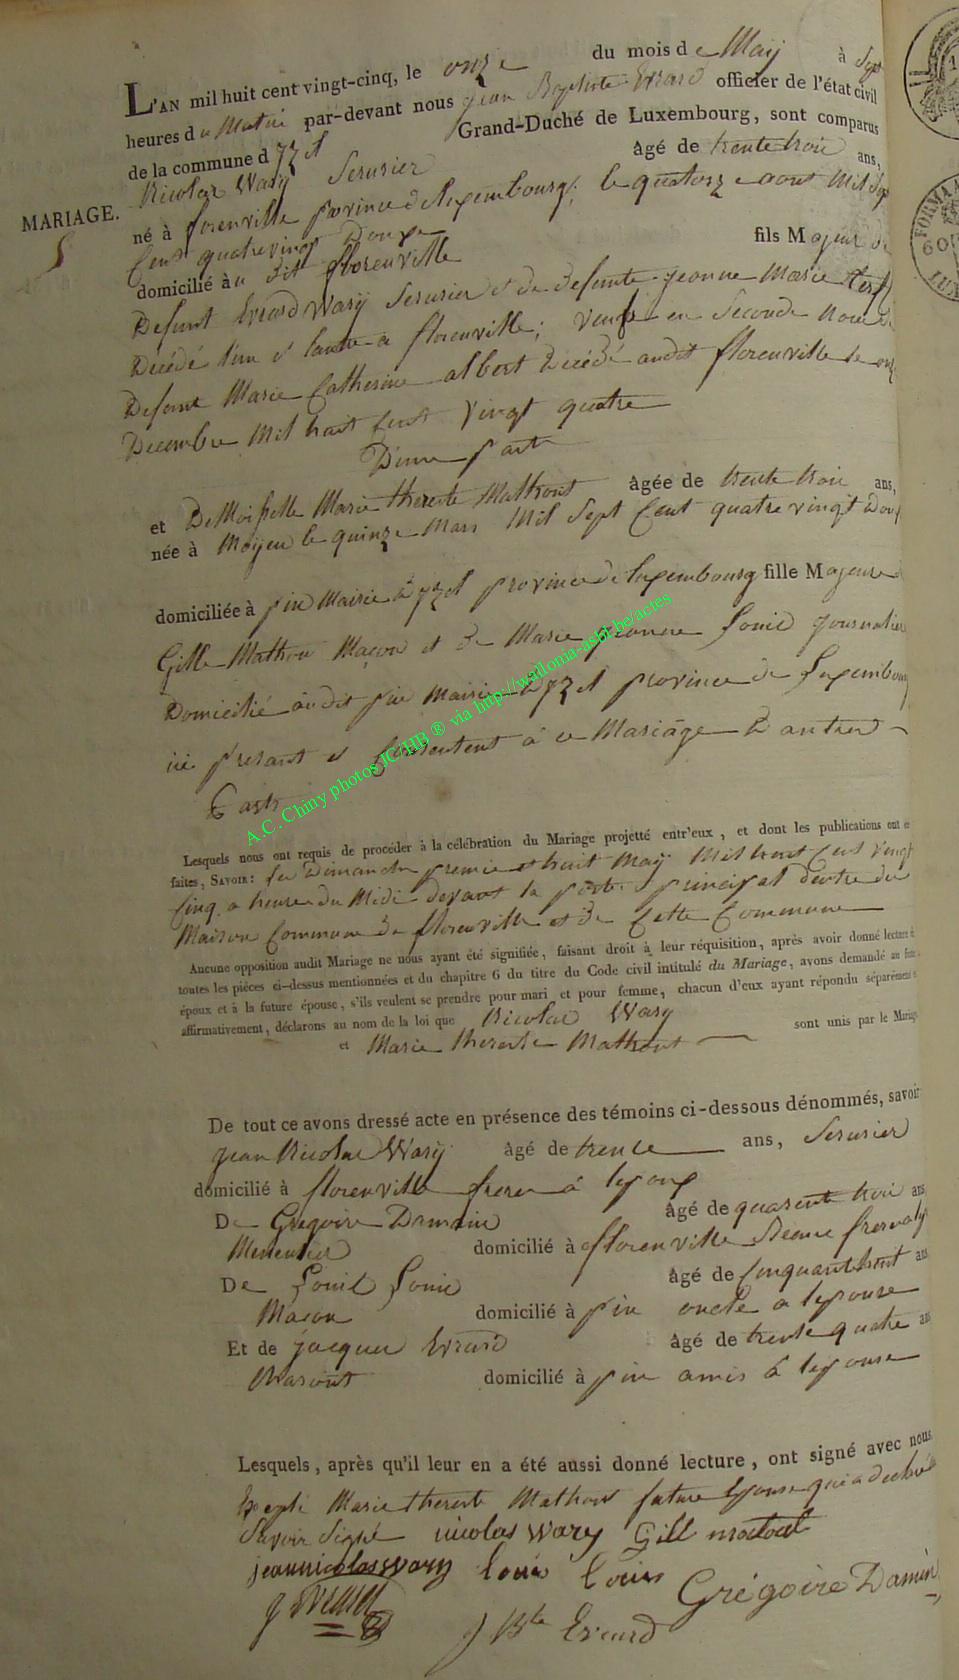 L'AN mil huit cent vingt-cinq, le onze du mois de Maÿ à Sept
heures du Matin par-devant nous jean Baptiste Evrard officier de l'état civil
de la commune d'jzel Grand-Duché de Luxembourg, sont comparus
Nicolas Warÿ Serusier âgé de trente trois ans,
MARIAGE.
né à florenville province de luxembourg, le quatorze aout Mil Sept
Cent quatrevingt Douze
domicilié au dit florenville fils Majeur de
Defunt Evrard Warÿ Serusier et de defunte jeanne Marie
Décédé l'un et lautre a florenville; veuf en Seconde Noce de
Defunt Marie Catherine albert Décédé audit florenville le onze
Decembre Mil huit Cent Vingt quatre
D'une part
et DeMoiselle Marie therese Mathout âgée de trente trois ans,
née à Moÿen le quinze Mars Mil Sept Cent quatre vingt Douze
domiciliée à pin Mairie d'jzel province de luxembourg fille Majeure de
Gille Mathou Maçon et de Marie jeanne Louis journalier
Domicilié audit pin Mairie d'jzel province de Luxembourg
ici present et Consentent à ce Mariage D'autre
Part
Lesquels nous ont requis de procéder à la célébration du Mariage projetté entr'eux, et dont les publications ont été
faites, SAVOIR: les Dimanche premier et huit Maÿ Mil huit Cent Vingt
Cinq a heure du Midi devant la porte principal dentre du
Maison Commune de florenville et de Cette Commune
Aucune opposition audit Mariage ne nous ayant été signifiée, faisant droit à leur réquisition, après avoir donné lecture de
toutes les pièces ci-dessus mentionnées et du chapitre 6 du titre du Code civil intitulé du Mariage, avons demandé au futur
époux et à la future épouse, s'ils veulent se prendre pour mari et pour femme, chacun d'eux ayant répondu séparément et
affirmativement, déclarons au nom de la loi que Nicolas Warÿ
et Marie therese Mathout sont unis par le Mariage
De tout ce avons dressé acte en présence des témoins ci-dessous dénommés, savoir
jean Nicolas Warÿ âgé de trente ans, Serusier
domicilié à florenville frere a lepoux
De Gregoire Damain âgé de quarent trois ans
Menusier domicilié à florenville
De Louis Louis âgé de Cinquanthuit ans
Macon domicilié à pin oncle a lepouse
Et de jacques Evrard âgé de trente quatre ans
domicilié à pin amis à lepouse
Lesquels, après qu'il leur en a été aussi donné lecture, ont signé avec nous
Excepte Marie therese Mathout future Epouse qui a declaré
Savoir Signé nicolas wary Gill matout
jeannicolas wary louis louis Grégoire Damin
J Evrard J Bte Evrard
A.C. Chiny photos JC HB ® via http://wallonia-asbl.be/actes